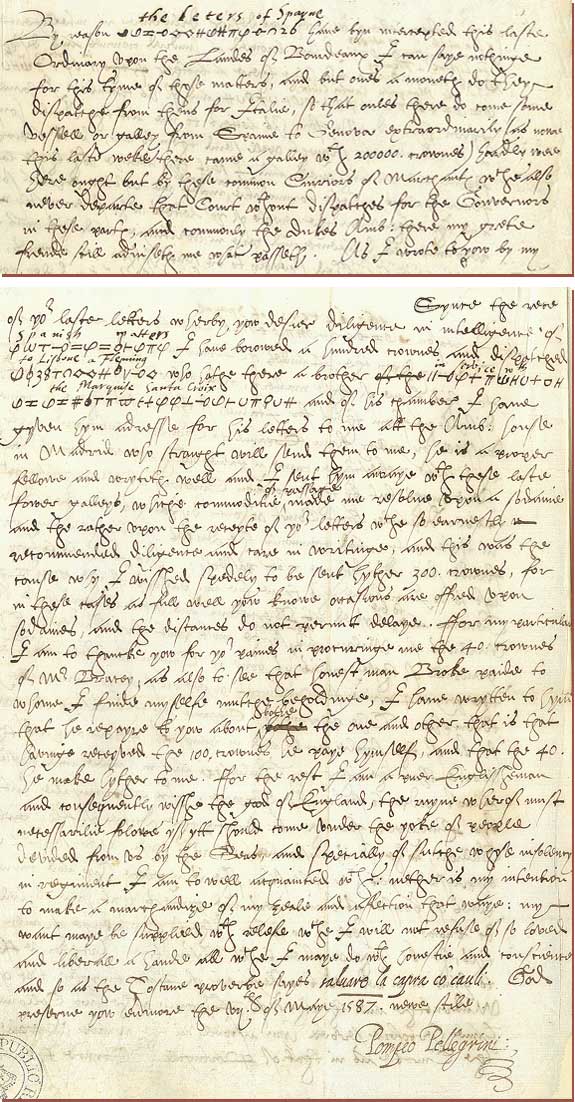 the leters of Spayne
By reason have byn intercepted this laste
Ordinary upon the Landes of Bourdeaux I can saye nthinge
for this tyme of those matters, and but ones a moneth do they
dispatche from thens for Italie, so that onles there do come some
vessell or galley from Spaine to Genova extraordinarily (as nowe
this last weke there came a galley wth 200000. crownes) hardly were
here ought but by these common Curriors of Marchants wche also
never departe that Court wthout dispatches for the Governors
in these parts, and commonly the Dukes Amb: there my grete
frende still adviseth me what passeth. As I wrote to yow by my
Synce the rece
of yor laste letters wherby, yow desier diligence in intelligence of
Spanish matters
I have borowed a hundred crownes, and dispatched
to Lisbone a Fleming
in service wth
who hathe there a brother
the Marquise Santa Croix
and of his chamber. I have
gyven hym adresse for his letters to me att the Amb: house
in Madrid who straight will send them to me, he is a proper
fellowe and wryteth well and I sent hym awaye wth these laste
of passage
fower galleys, whiche commoditie, made me resolve upon a sodaine
and the rather upon the recepte of yor letters wche so earnestly
recommended diligence and care in writinge, and this was the
cause why I wisshed spedely to be sent hyther 300. crownes, for
in these cases as full well yow knowe occasions are offred upon
sodaines, and the distances do not permit delaye. Ffor my particular
I am to thancke yow for yor paines in procuringe me the 40. crownes
of Mr Bracey, as also to see that honest man Broke paide to
whome I finde myselfe mutche beholdinge, I have wrytten to hym
that he repayre to yow about the one and other that is that
havinge receyved the 100. crownes he paye hymself, and that the 40.
he make hyther to me. Ffor the rest I am a puer Englissheman
and consequently wisshe the good of England, the ruyne wherof must
necessarilie folowe ys yff should come under the yoke of people
devided from us by the Seas, and specially of sutche whose insolency
in regiment I am to well acquainted wth: nether is my intention
to make a marchandize of my zeale and affection that waye: my
want maye be supplied wth relese wche I will not refuse of so loved
and liberall a hande all wche I maye do wth honestie and conscience
and so as the Toscane proverbe sayes salvare la capra co' cauli. God
preserve yow evermore the of Maye 1587. newe stile
Pompeo Pellegrini:
PUBLIC R